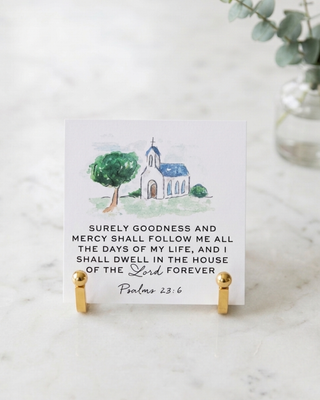 SURELY GOODNESS AND
MERCY SHALL FOLLOW ME ALL
THE DAYS OF MY LIFE, AND I
SHALL DWELL IN THE HOUSE
OF THE Lord FOREVER
Psalms 23:6